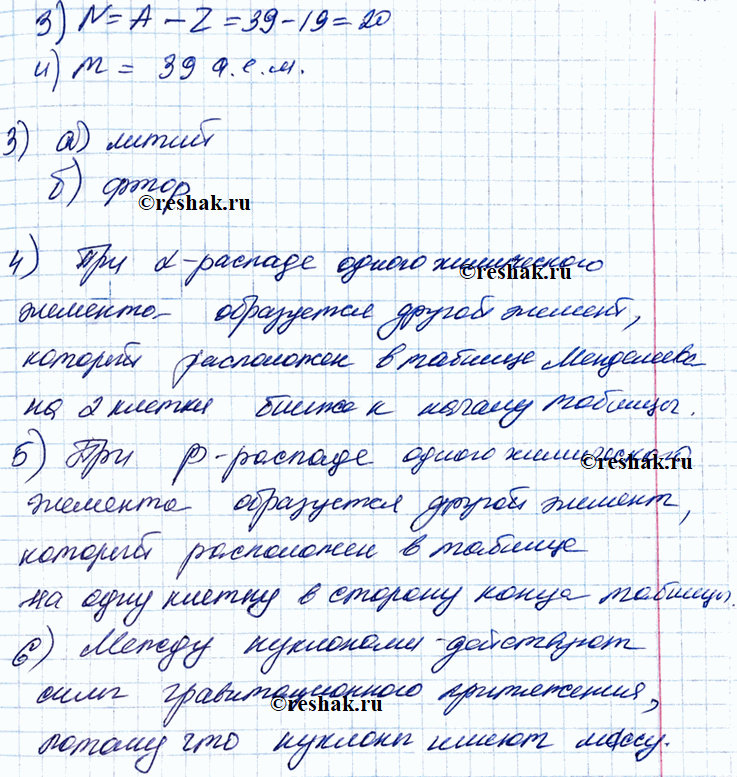 3) N = A - Z = 39 - 19 = 20
и) m = 39 а.е.м.
3) а) литий
б) фтор
©reshak.ru
4) При α-распаде одного химического
©reshak.ru
элемента образуется другой элемент,
который расположен в таблице Менделеева
на 2 клетки ближе к началу таблицы.
5) При β-распаде одного химического
©reshak.ru
элемента образуется другой элемент,
который расположен в таблице
на одну клетку в сторону конца таблицы.
6) Между нуклонами действуют
силы гравитационного притяжения,
©reshak.ru
потому что нуклоны имеют массу.